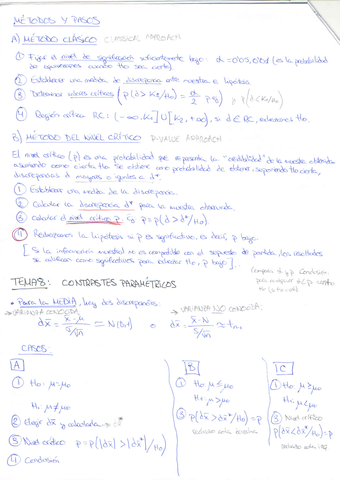 MÉTODOS Y PASOS
A) MÉTODO CLÁSICO CLASSICAL APPROACH
① Fijar el nivel de significación suficientemente bajo α = 0'05, 0'01 (es la probabilidad
de equivocarnos cuando Ho sea cierta)
② Establecer una medida de discrepancia entre muestra e hipótesis
③ Determinar valores críticos (p(d > K2/Ho) = α/2
④ Región crítica RC: (-∞, K1] U [K2, +∞), si d ∈ RC, rechazamos Ho.
B) MÉTODO DEL NIVEL CRÍTICO P-VALUE APPROACH
El nivel crítico (p) es una probabilidad que representa la "credibilidad" de la muestra obtenida
suponiendo como cierta Ho. Se obtiene como probabilidad de obtener, suponiendo Ho cierta,
discrepancias d mayores o iguales a d*.
① Establecer una medida de la discrepancia.
② Calcular la discrepancia d* para la muestra observada.
③ Calcular el nivel crítico p. p = p(d > d*/Ho)
④ Rechazamos la hipótesis si p es significativo, es decir, p bajo.
[ Si la información muestral no es compatible con el supuesto de partida, los resultados
se califican como significativos para rechazar Ho, p bajo ].
TEMA 8: CONTRASTES PARAMÉTRICOS
• Para la MEDIA, hay dos discrepancias:
→ VARIANZA CONOCIDA → VARIANZA NO CONOCIDA
CASOS:
A B C
① Ho: μ = μo ① Ho: μ ≤ μo ① Ho: μ ≥ μo
H1: μ ≠ μo H1: μ > μo H1: μ < μo
② Elegir dx̄ y calcularla → d*
③ Nivel crítico p = p(|dx̄| > |dx̄*|/Ho) ③ p(dx̄ > dx̄*/Ho) = p ③ Nivel crítico p(dx̄ < dx̄*/Ho) = p
④ Conclusión